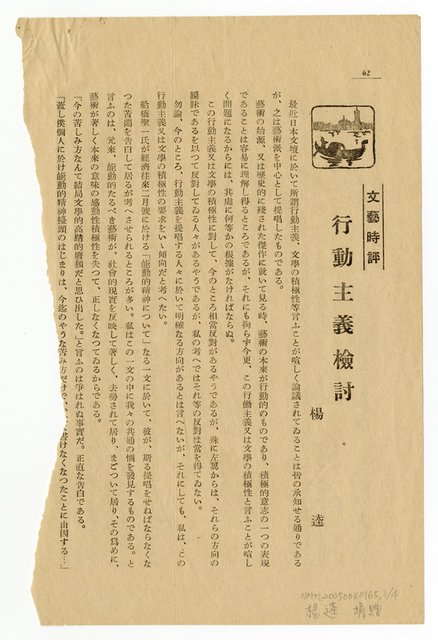 62
文藝時評
行動主義檢討
楊逵
最近日本文壇に於いて所謂行動主義、文學の積極性等言ふことが喧しく論議されてゐることは皆の承知せる通りである
が、之は藝術派を中心として提唱したものである。
藝術の始源、又は歷史的に殘された傑作に就いて見る時、藝術の本來が行動的のものであり、積極的意志の一つの表現
であることは容易に理解し得るところであるが、それにも拘らず今更、この行働主義又は文學の積極性と言ふことが喧し
く問題になるからには、其處に何等かの根據がなければならぬ。
この行動主義又は文學の積極性に對して、今のところ相當反對があるやうであるが、殊に左翼からは、それらの方向の
曖昧であるを以つて反對してゐる人々があるやうであるが、私の考へではそれ等の反對は當を得てゐない。
勿論、今のところ、行動主義を提唱する人々に於いて明確なる方向があるとは言へないが、それにしても、私は、この
行動主義又は文學の積極性の要求をいゝ傾向だと考へたい。
船橋聖一氏が經濟往來二月號に於ける「能動的精神について」なる一文に於いて、彼が、斯る提唱をせねばならなくな
つた苦悶を告白して居るが考へさせられるところが多い。私はこの一文の中に我々の共通の惱を發見するものである。と
言ふのは、元來、能動的たるべき藝術が、社會的現實を反映して著しく、去勢されて居り、まごついて居り、その爲めに、
藝術が著しく本來の意味の感動性積極性を失つて、正しくなつてゐるからである。
「今の苦しみ方なんて結局文學的高踏的廢頽だと思ひ出した。」と言ふのは爭はれぬ事實だ。正直な告白である。
「蓋し僕個人に於け能動的精神擡頭のはじまりは、今迄のやうな苦み方だけで、書けなくなつたことに由因する…」
NMTL20050040165,1/4
楊逵 捐贈